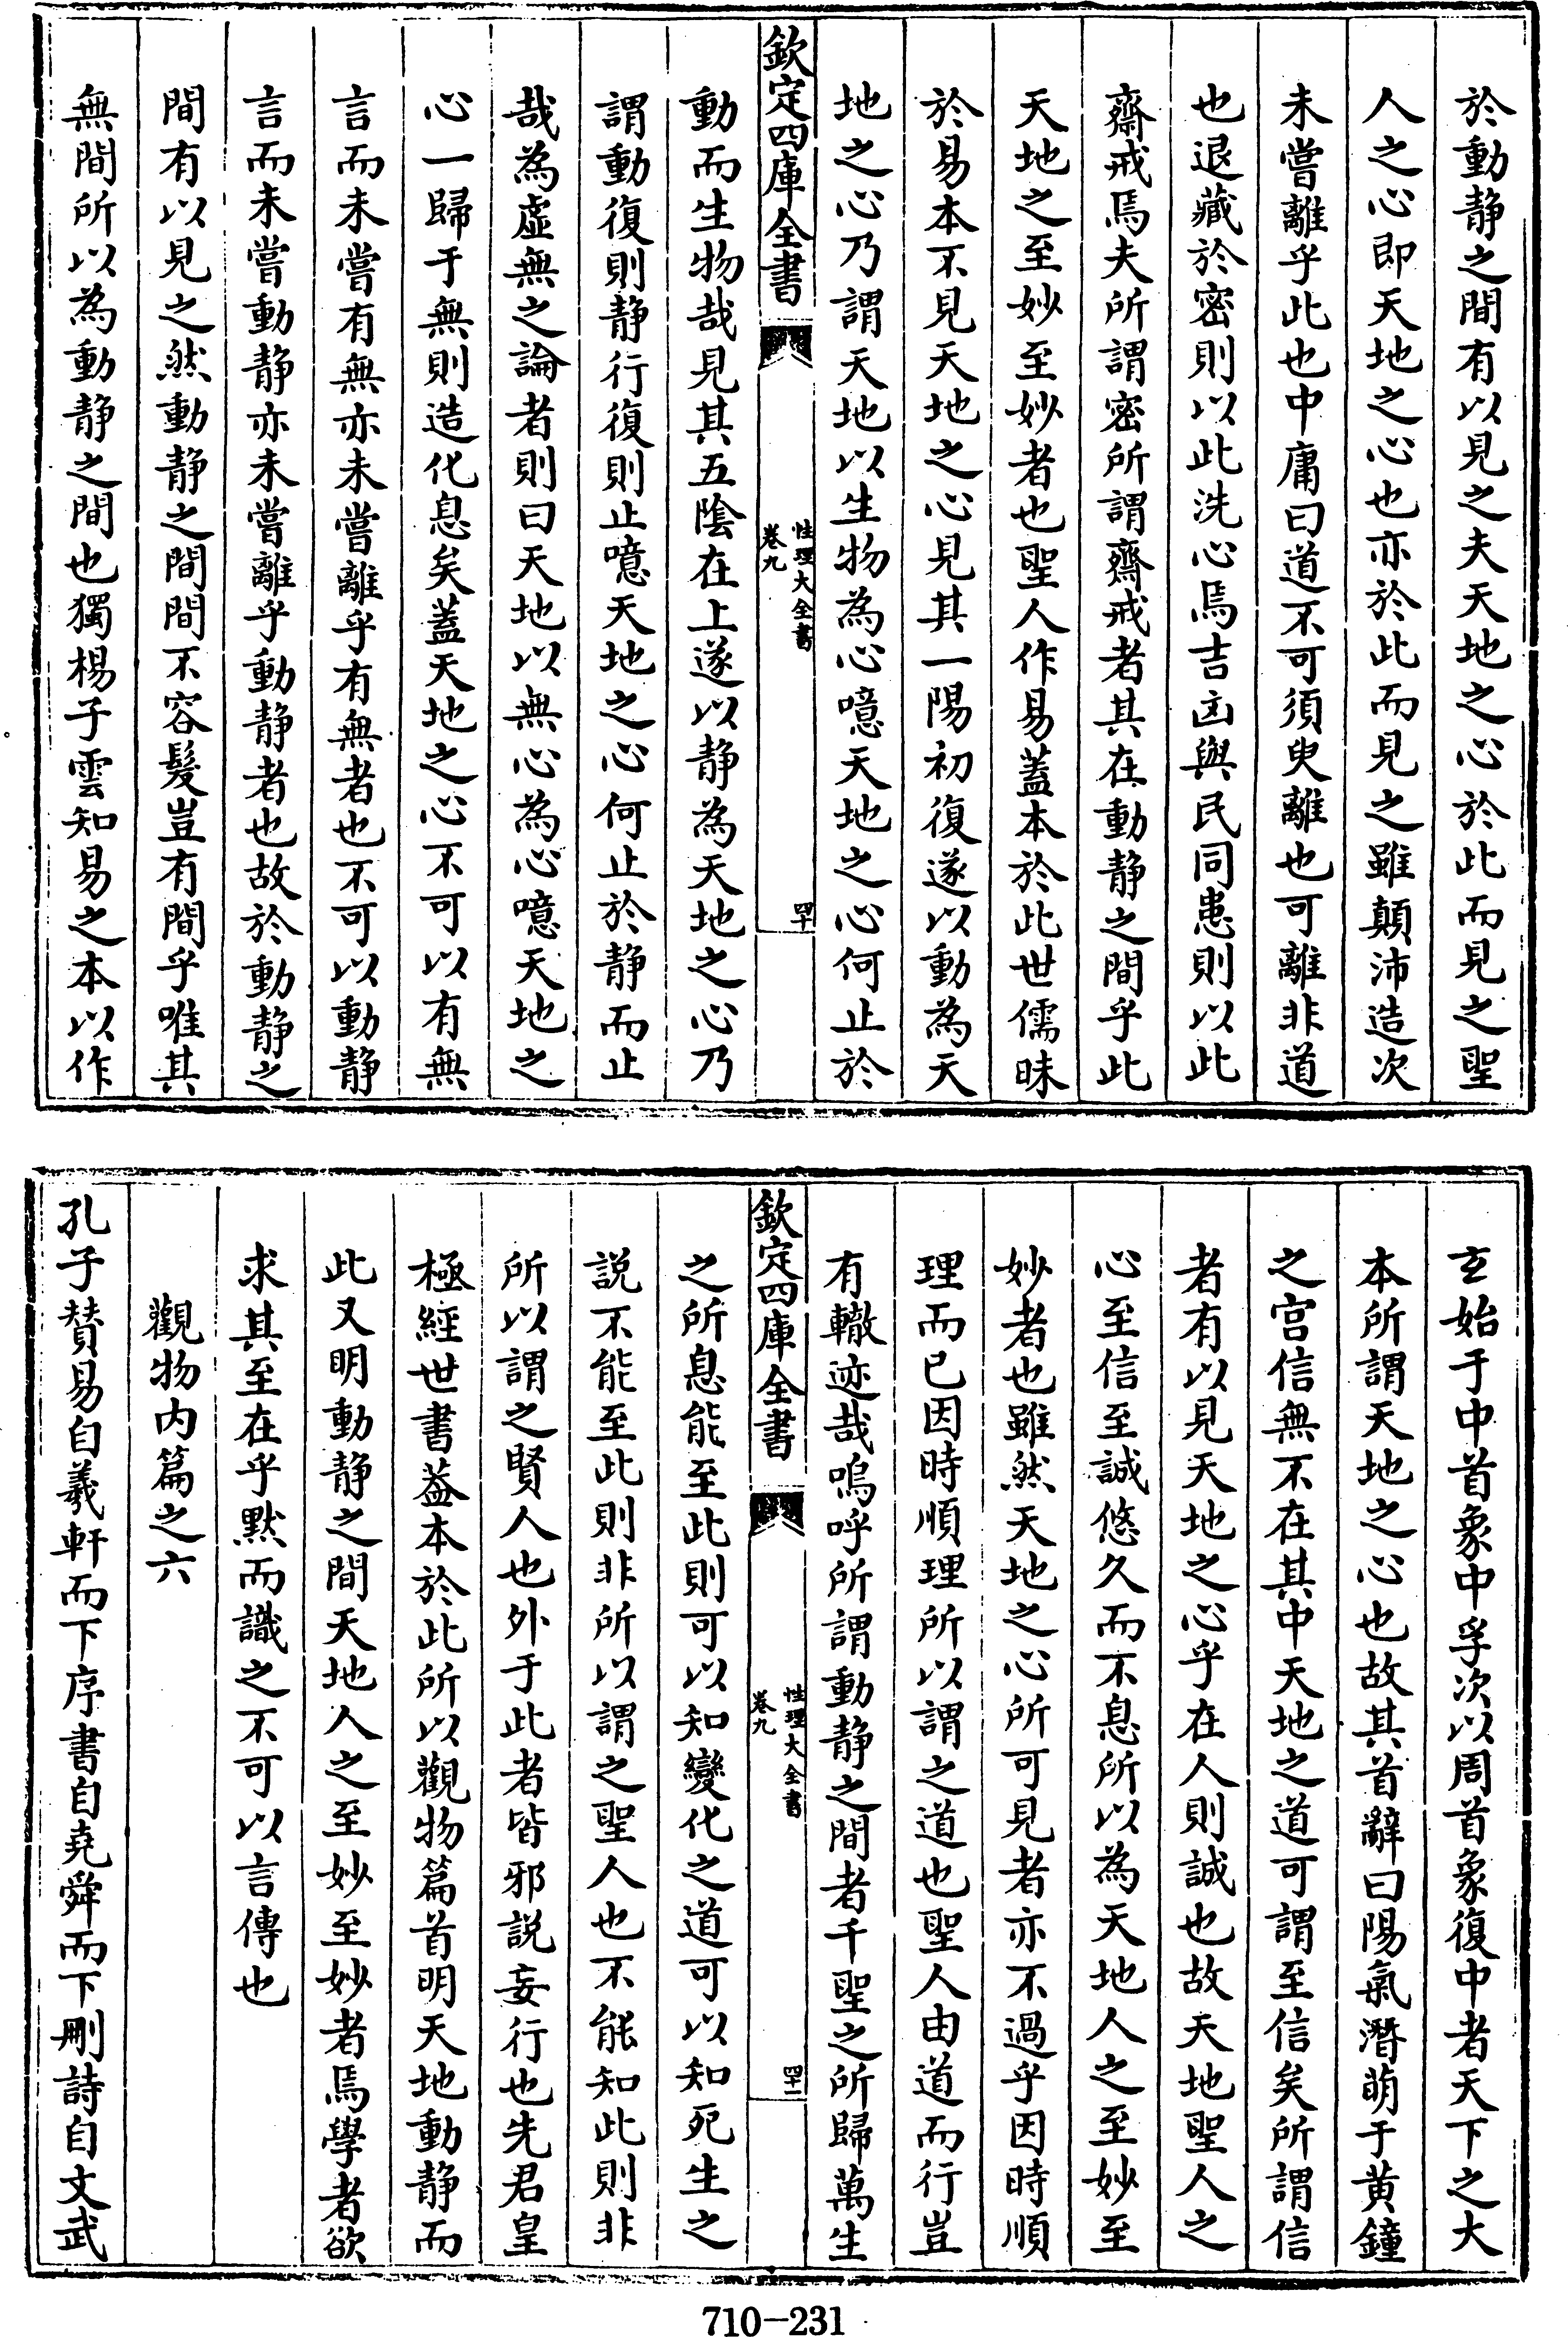 於動静之間有以見之夫天地之心於此而見之聖
人之心即天地之心也亦於此而見之雖顛沛造次
未嘗離乎此也中庸曰道不可須臾離也可離非道
也退藏於密則以此洗心焉吉凶與民同患則以此
齋戒焉夫所謂密所謂齋戒者其在動静之間乎此
天地之至妙至妙者也聖人作易蓋本於此世儒昧
於易本不見天地之心見其一陽初復遂以動為天
地之心乃謂天地以生物為心噫天地之心何止於
欽定四庫全書
性理大全書
卷九
四十
動而生物哉見其五陰在上遂以静為天地之心乃
謂動復則静行復則止噫天地之心何止於静而止
哉為虛無之論者則曰天地以無心為心噫天地之
心一歸于無則造化息矣蓋天地之心不可以有無
言而未嘗有無亦未嘗離乎有無者也不可以動静
言而未嘗動静亦未嘗離乎動静者也故於動静之
間有以見之然動静之間間不容髮豈有間乎唯其
無間所以為動静之間也獨楊子雲知易之本以作
玄始于中首象中孚次以周首象復中者天下之大
本所謂天地之心也故其首辭曰陽氣潛萌于黄鐘
之宫信無不在其中天地之道可謂至信矣所謂信
者有以見天地之心乎在人則誠也故天地聖人之
心至信至誠悠久而不息所以為天地人之至妙至
妙者也雖然天地之心所可見者亦不過乎因時順
理而已因時順理所以謂之道也聖人由道而行豈
有轍迹哉嗚呼所謂動静之間者千聖之所歸萬生
欽定四庫全書
性理大全書
卷九
四十一
之所息能至此則可以知變化之道可以知死生之
説不能至此則非所以謂之聖人也不能知此則非
所以謂之賢人也外于此者皆邪説妄行也先君皇
極經世書葢本於此所以觀物篇首明天地動静而
此又明動静之間天地人之至妙至妙者焉學者欲
求其至在乎黙而識之不可以言傳也
觀物内篇之六
孔子賛易自羲軒而下序書自堯舜而下刪詩自文武
710-231